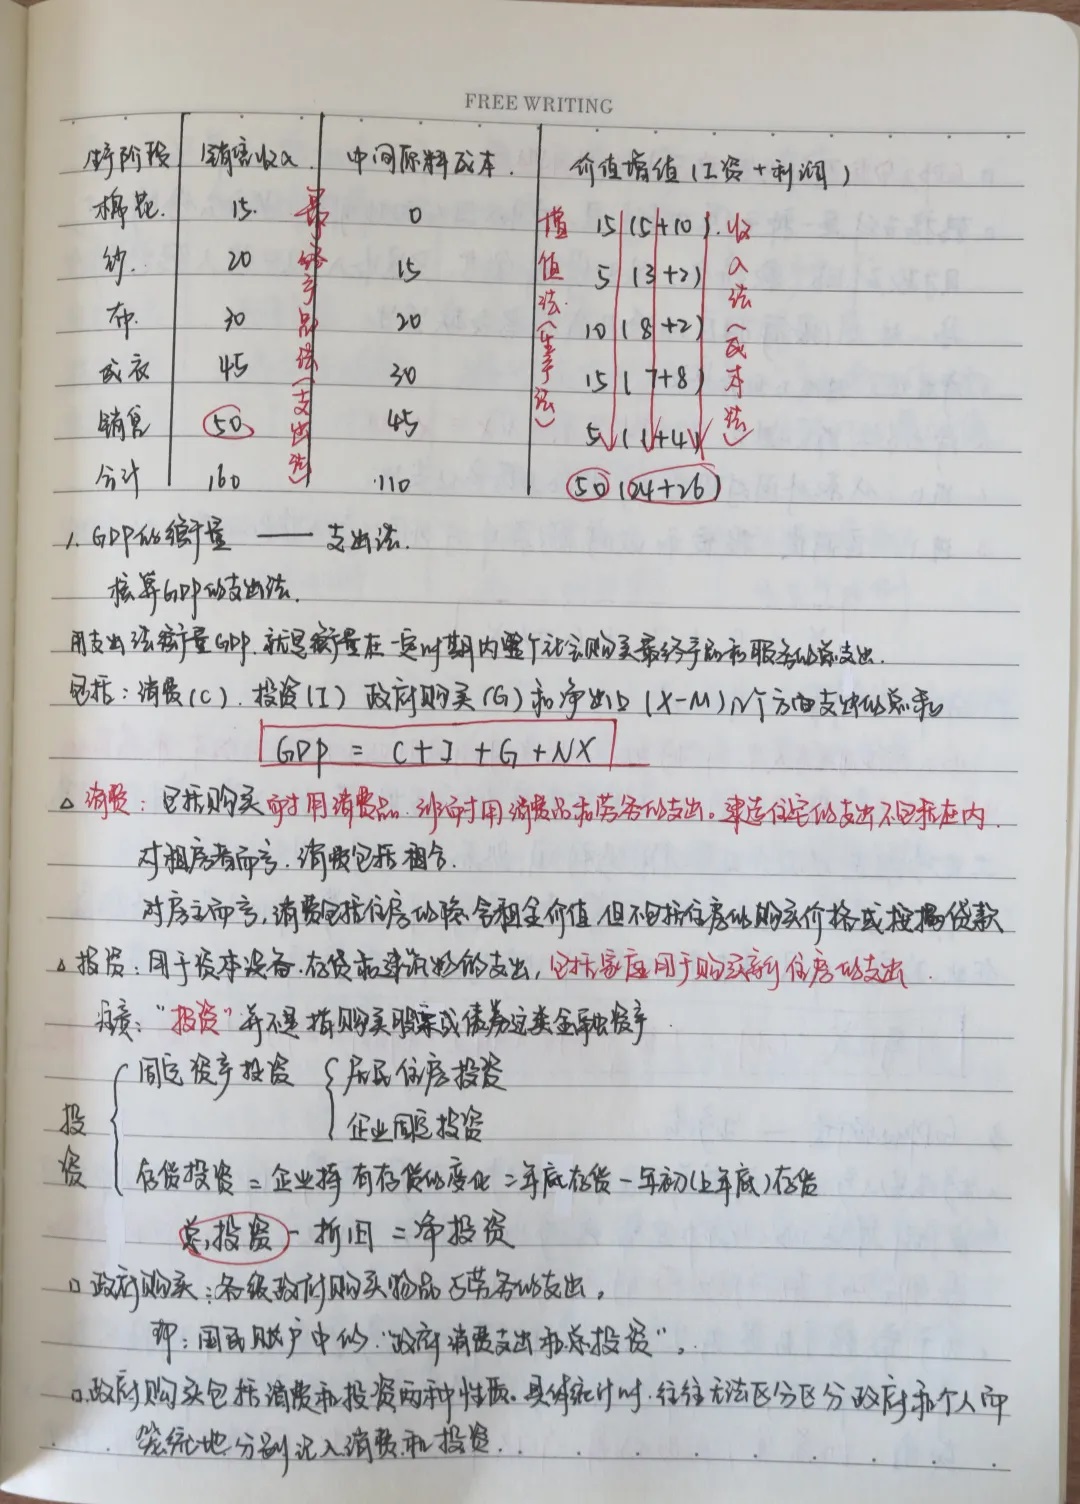 FREE WRITING
生产阶段 销售收入 中间原料成本 价值增值(工资+利润)
棉花 15 0 15 (5+10)
纱 20 15 5 (3+2)
布 30 20 10 (8+2)
成衣 45 30 15 (7+8)
销售 50 45 5 (1+4)
合计 160 110 50 (24+26)
最终产品法(支出法)
增值法(生产法)
收入法(成本法)
1. GDP的衡量 —— 支出法.
核算GDP的支出法.
用支出法衡量GDP.就是衡量在一定时期内整个社会购买最终产品和服务的总支出.
包括:消费(C).投资(I) 政府购买(G)和净出口(X-M)几个方面支出的总和
GDP = C+I+G+NX
△ 消费:包括购买耐用消费品.非耐用消费品和劳务的支出。建造住宅的支出不包括在内.
对租房者而言.消费包括租金.
对房主而言,消费包括住房的隐含租金价值,但不包括住房的购买价格或按揭贷款
△ 投资:用于资本设备.存货和建筑物的支出,包括家庭用于购买新住房的支出.
注意:“投资”并不是指购买股票或债券这类金融资产.
投资
固定资产投资 居民住房投资
企业固定投资
存货投资=企业持有存货的变化=年底存货-年初(上年底)存货
总投资-折旧=净投资
□ 政府购买:各级政府购买物品与劳务的支出,
即:国民账户中的.“政府消费支出和总投资”。
□.政府购买包括消费和投资两种性质。具体统计时.往往无法区分区分政府和个人而
笼统地.分别记入消费和投资.